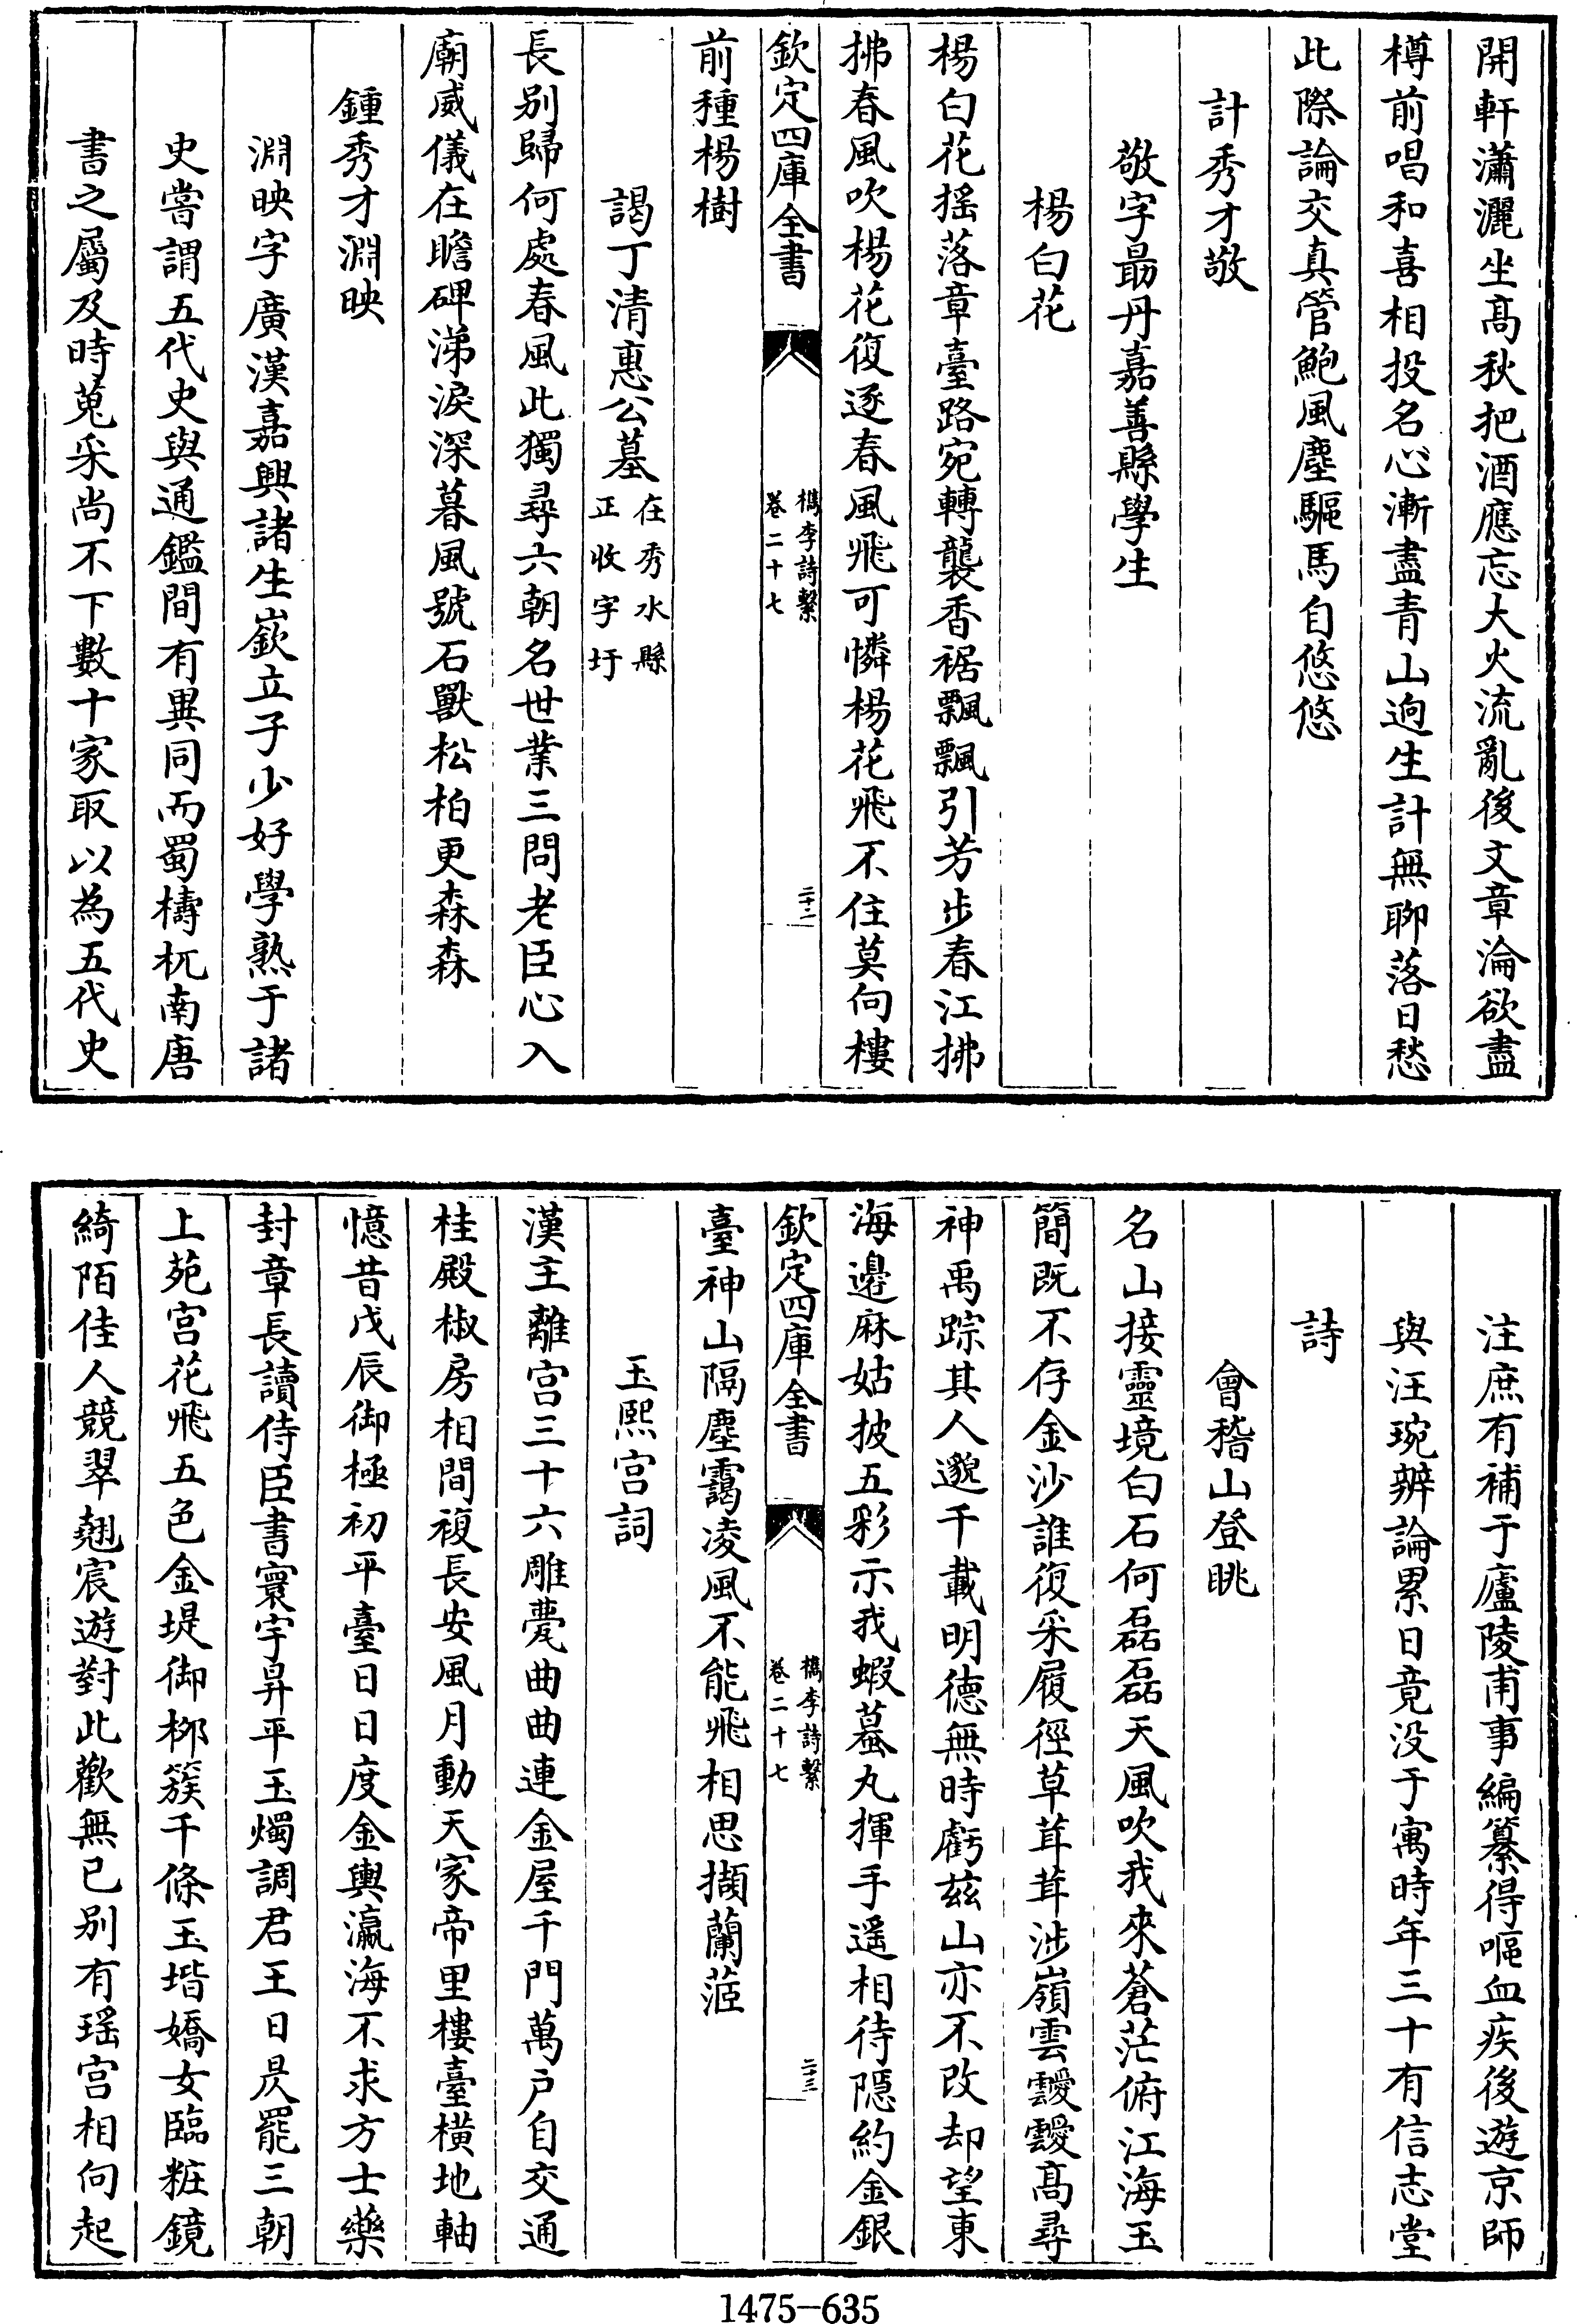 開軒瀟灑坐高秋把酒應忘大火流亂後文章淪欲盡
樽前唱和喜相投名心漸盡青山逈生計無聊落日愁
此際論交真管鮑風塵驅馬自悠悠
計秀才敬
敬字勗丹嘉善縣學生
楊白花
楊白花搖落章臺路宛轉襲香裾飄飄引芳步春江拂
拂春風吹楊花復逐春風飛可憐楊花飛不住莫向樓
欽定四庫全書
檇李詩繫
卷二十七
二十二
前種楊樹
謁丁清惠公墓
在秀水縣
正收字圩
長别歸何處春風此獨尋六朝名世業三問老臣心入
廟威儀在瞻碑涕淚深暮風號石獸松柏更森森
鍾秀才淵映
淵映字廣漢嘉興諸生嶔立子少好學熟于諸
史嘗謂五代史與通鑑間有異同而蜀檮杌南唐
書之屬及時蒐采尚不下數十家取以為五代史
注庶有補于廬陵甫事編纂得嘔血疾後遊京師
與汪琬辨論累日竟没于寓時年三十有信志堂
詩
會稽山登眺
名山接靈境白石何磊磊天風吹我來蒼茫俯江海玉
簡既不存金沙誰復采履徑草茸茸涉嶺雲靉靉高尋
神禹踪其人邈千載明德無時虧兹山亦不改却望東
海邊麻姑披五彩示我蝦蟇丸揮手遥相待隱約金銀
欽定四庫全書
檇李詩繫
卷二十七
二十三
臺神山隔塵靄凌風不能飛相思擷蘭茝
玉熙宫詞
漢主離宫三十六雕甍曲曲連金屋千門萬户自交通
桂殿椒房相間複長安風月動天家帝里樓臺橫地軸
憶昔戊辰御極初平臺日日度金輿瀛海不求方士藥
封章長讀侍臣書寰宇昇平玉燭調君王日昃罷三朝
上苑宫花飛五色金堤御栁簇千條玉堦嬌女臨粧鏡
綺陌佳人競翠翹宸遊對此歡無已别有瑶宫相向起
1475—635